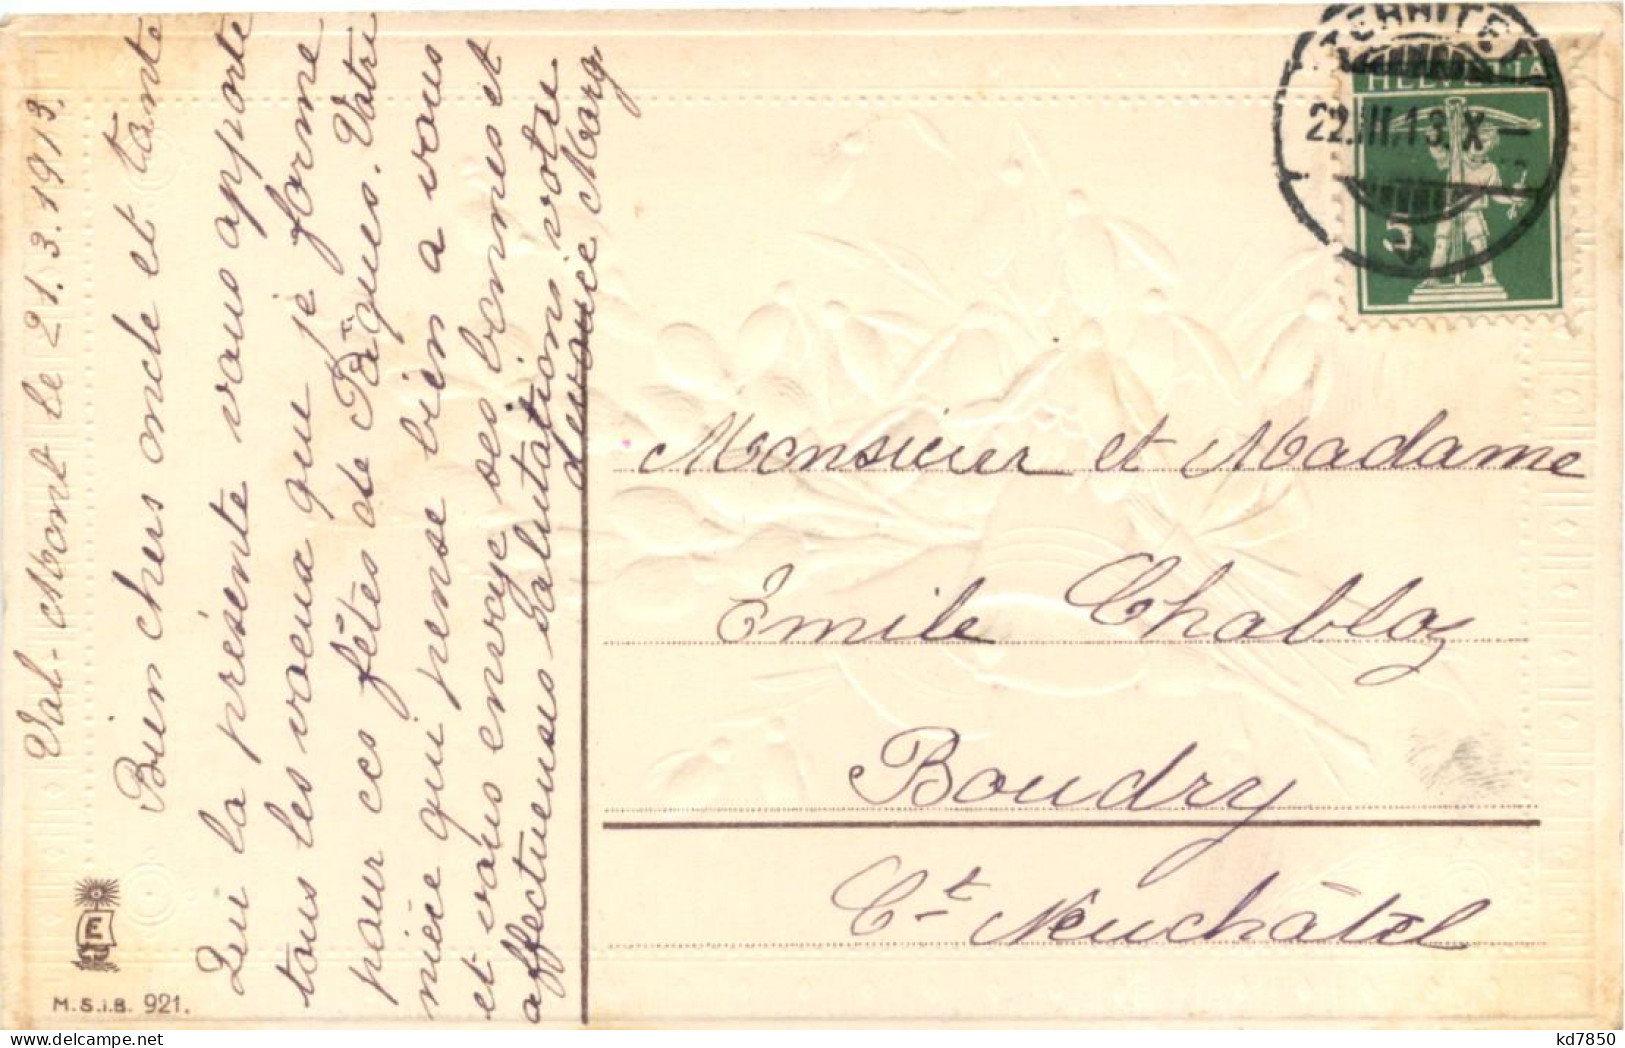 Val-Mont le 21.3.1913.
Bien chers oncle et tante
Que la présente vous apporte
tous les voeux que je forme
pour ces fêtes de Pâques. Votre
nièce qui pense bien a vous
et vous envoye ses bonnes et
affectueuses Salutations votre
Marg.
HELVETIA
22.III.13.X
5
Monsieur et Madame
Émile Chabloz
Boudry
Ct. Neuchâtel
E
M.S.i.B. 921.
kd7850